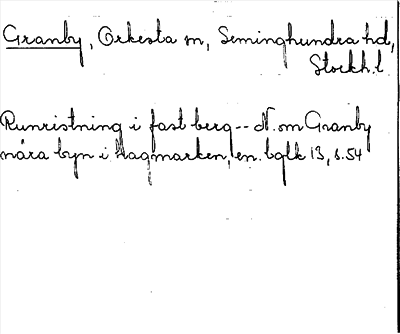 Granby, Orkesta sn, Seminghundra hd,
Stockh. l
Runristning i fast berg -- N. om Granby
nära byn i Hagmarken, en. bglk 13, s. 54